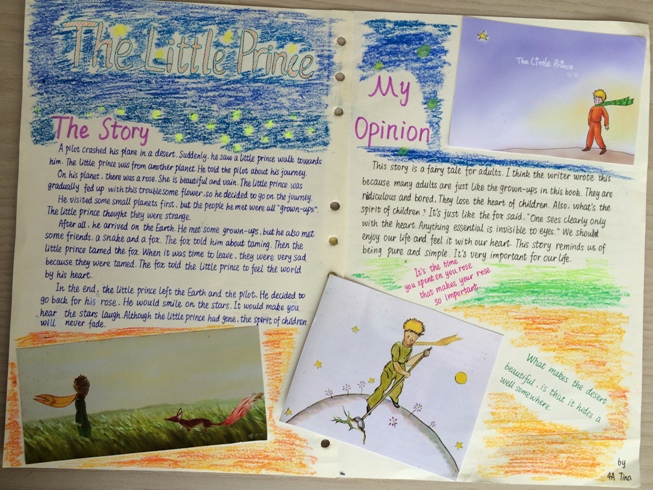 The Little Prince
The Story
A pilot crashed his plane in a desert. Suddenly, he saw a little prince walk towards
him. The little prince was from another planet. He told the pilot about his journey.
On his planet, there was a rose. She is beautiful and vain. The little prince was
gradually fed up with this troublesome flower, so he decided to go on the journey.
He visited some small planets first, but the people he met were all "grown-ups".
The little prince thought they were strange.
After all, he arrived on the Earth. He met some grown-ups, but he also met
some friends, a snake and a fox. The fox told him about taming. Then the
little prince tamed the fox. When it was time to leave, they were very sad
because they were tamed. The fox told the little prince to feel the world
by his heart.
In the end, the little prince left the Earth and the pilot. He decided to
go back for his rose. He would smile on the stars. It would make you
hear the stars laugh. Although the little prince had gone, the spirit of children
will never fade.
My
Opinion
The Little Prince
This story is a fairy tale for adults. I think the writer wrote this
because many adults are just like the grown-ups in this book. They are
ridiculous and bored. They lose the heart of children. Also, what's the
spirit of children? It's just like the fox said. "One sees clearly only
with the heart. Anything essential is invisible to eyes." We should
enjoy our life and feel it with our heart. This story reminds us of
being pure and simple. It's very important for our life.
Is's the time
you spent on you rose
that makes your rose
so important.
What makes the desert
beautiful, is that it hides a
well somewhere.
by
4A Tina